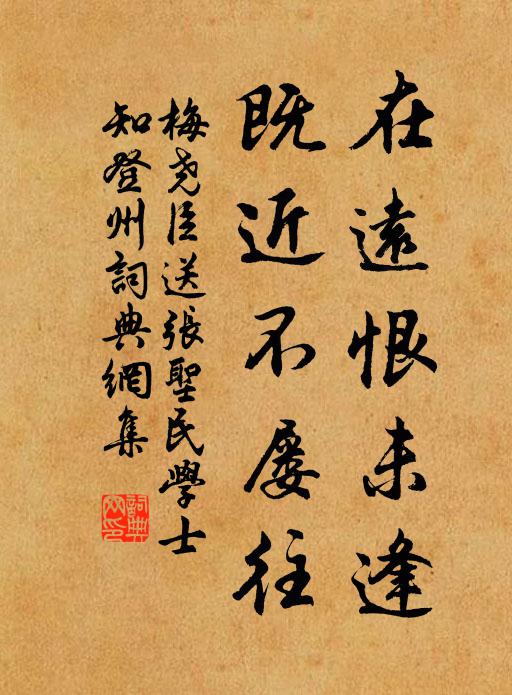 在遠恨未逢
既近不屡往
梅尧臣送張聖民學士
知登州詞典網集
詞典網印